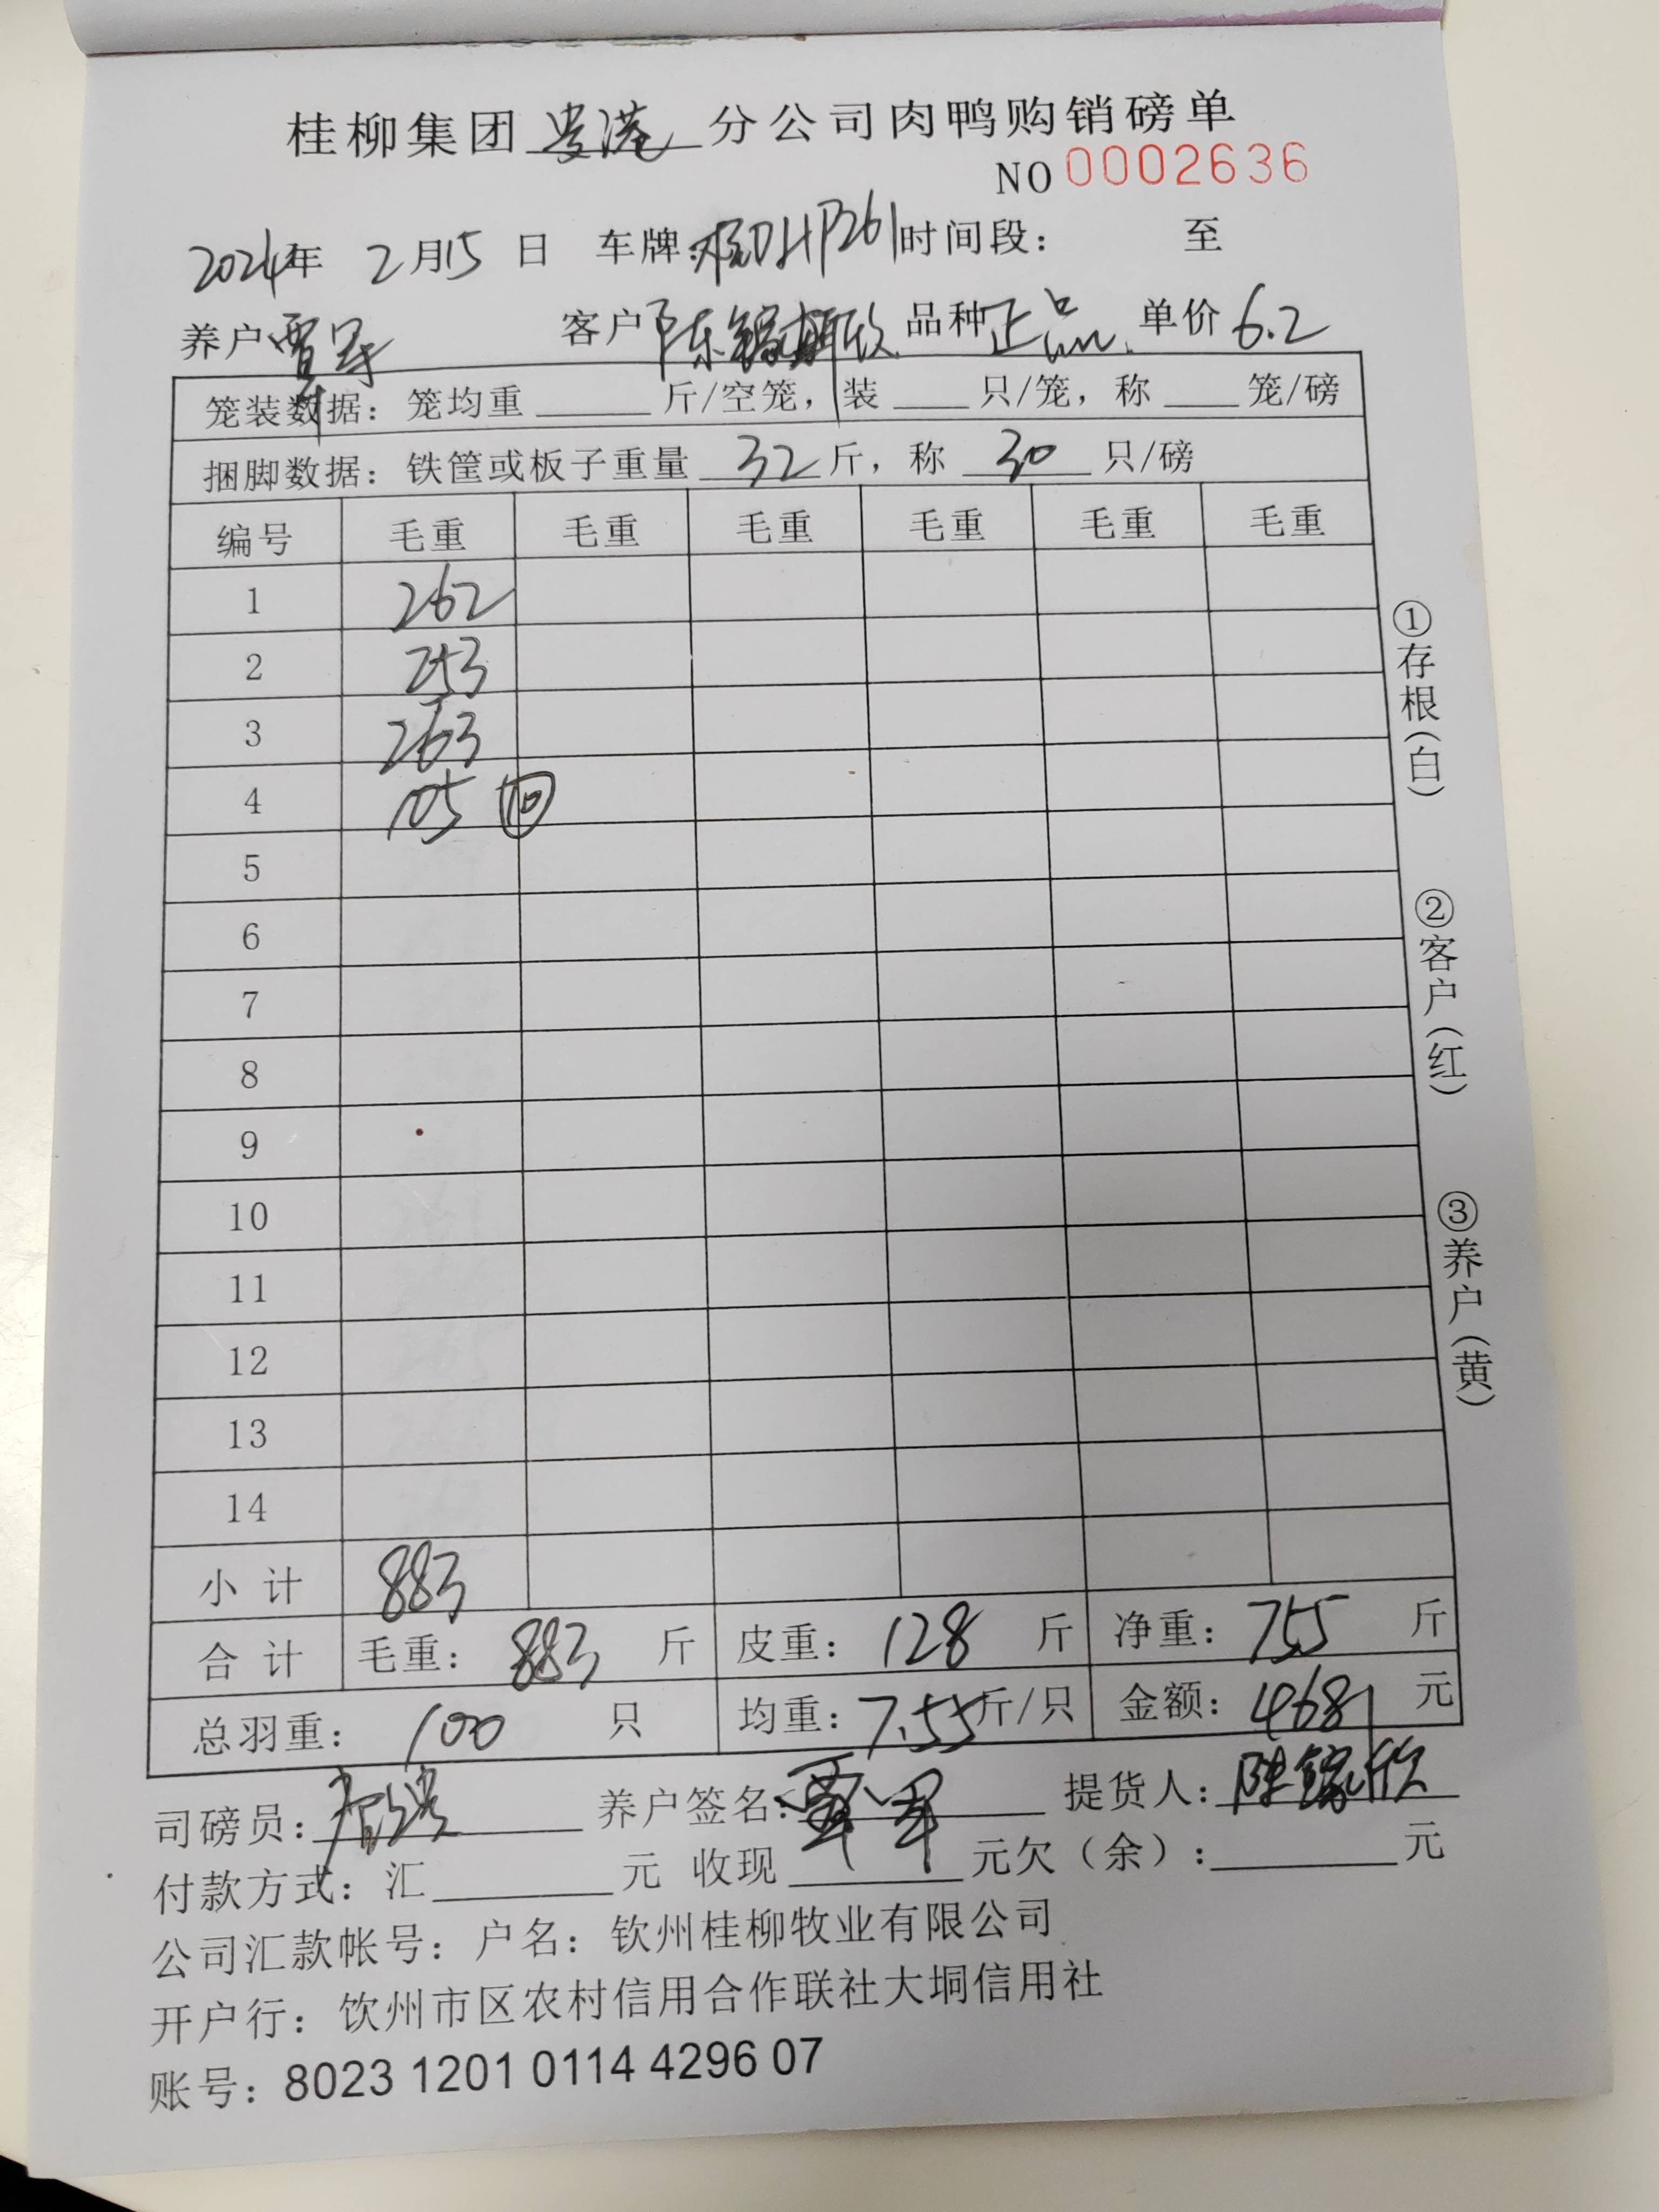 桂柳集团贵港分公司肉鸭购销磅单
NO 0002636
2024年 2月15日 车牌: 时间段: 至
养户 客户 陈 欣 品种 正品 单价 6.2
笼装数据: 笼均重 斤/空笼, 装 只/笼, 称 笼/磅
捆脚数据: 铁筐或板子重量 32 斤, 称 30 只/磅
编号 毛重 毛重 毛重 毛重 毛重 毛重
1 262
2 253
3 263
4 105 ⑩
5
6
7
8
9
10
11
12
13
14
小计 883
合计 毛重: 883 斤 皮重: 128 斤 净重: 755 斤
总羽重: 100 只 均重: 7.55 斤/只 金额: 4681 元
司磅员: 养户签名: 覃军 提货人: 陈 欣
付款方式: 汇 元 收现 元欠(余): 元
公司汇款帐号: 户名: 钦州桂柳牧业有限公司
开户行: 钦州市区农村信用合作联社大垌信用社
账号: 8023 1201 0114 4296 07
①存根(白)
②客户(红)
③养户(黄)